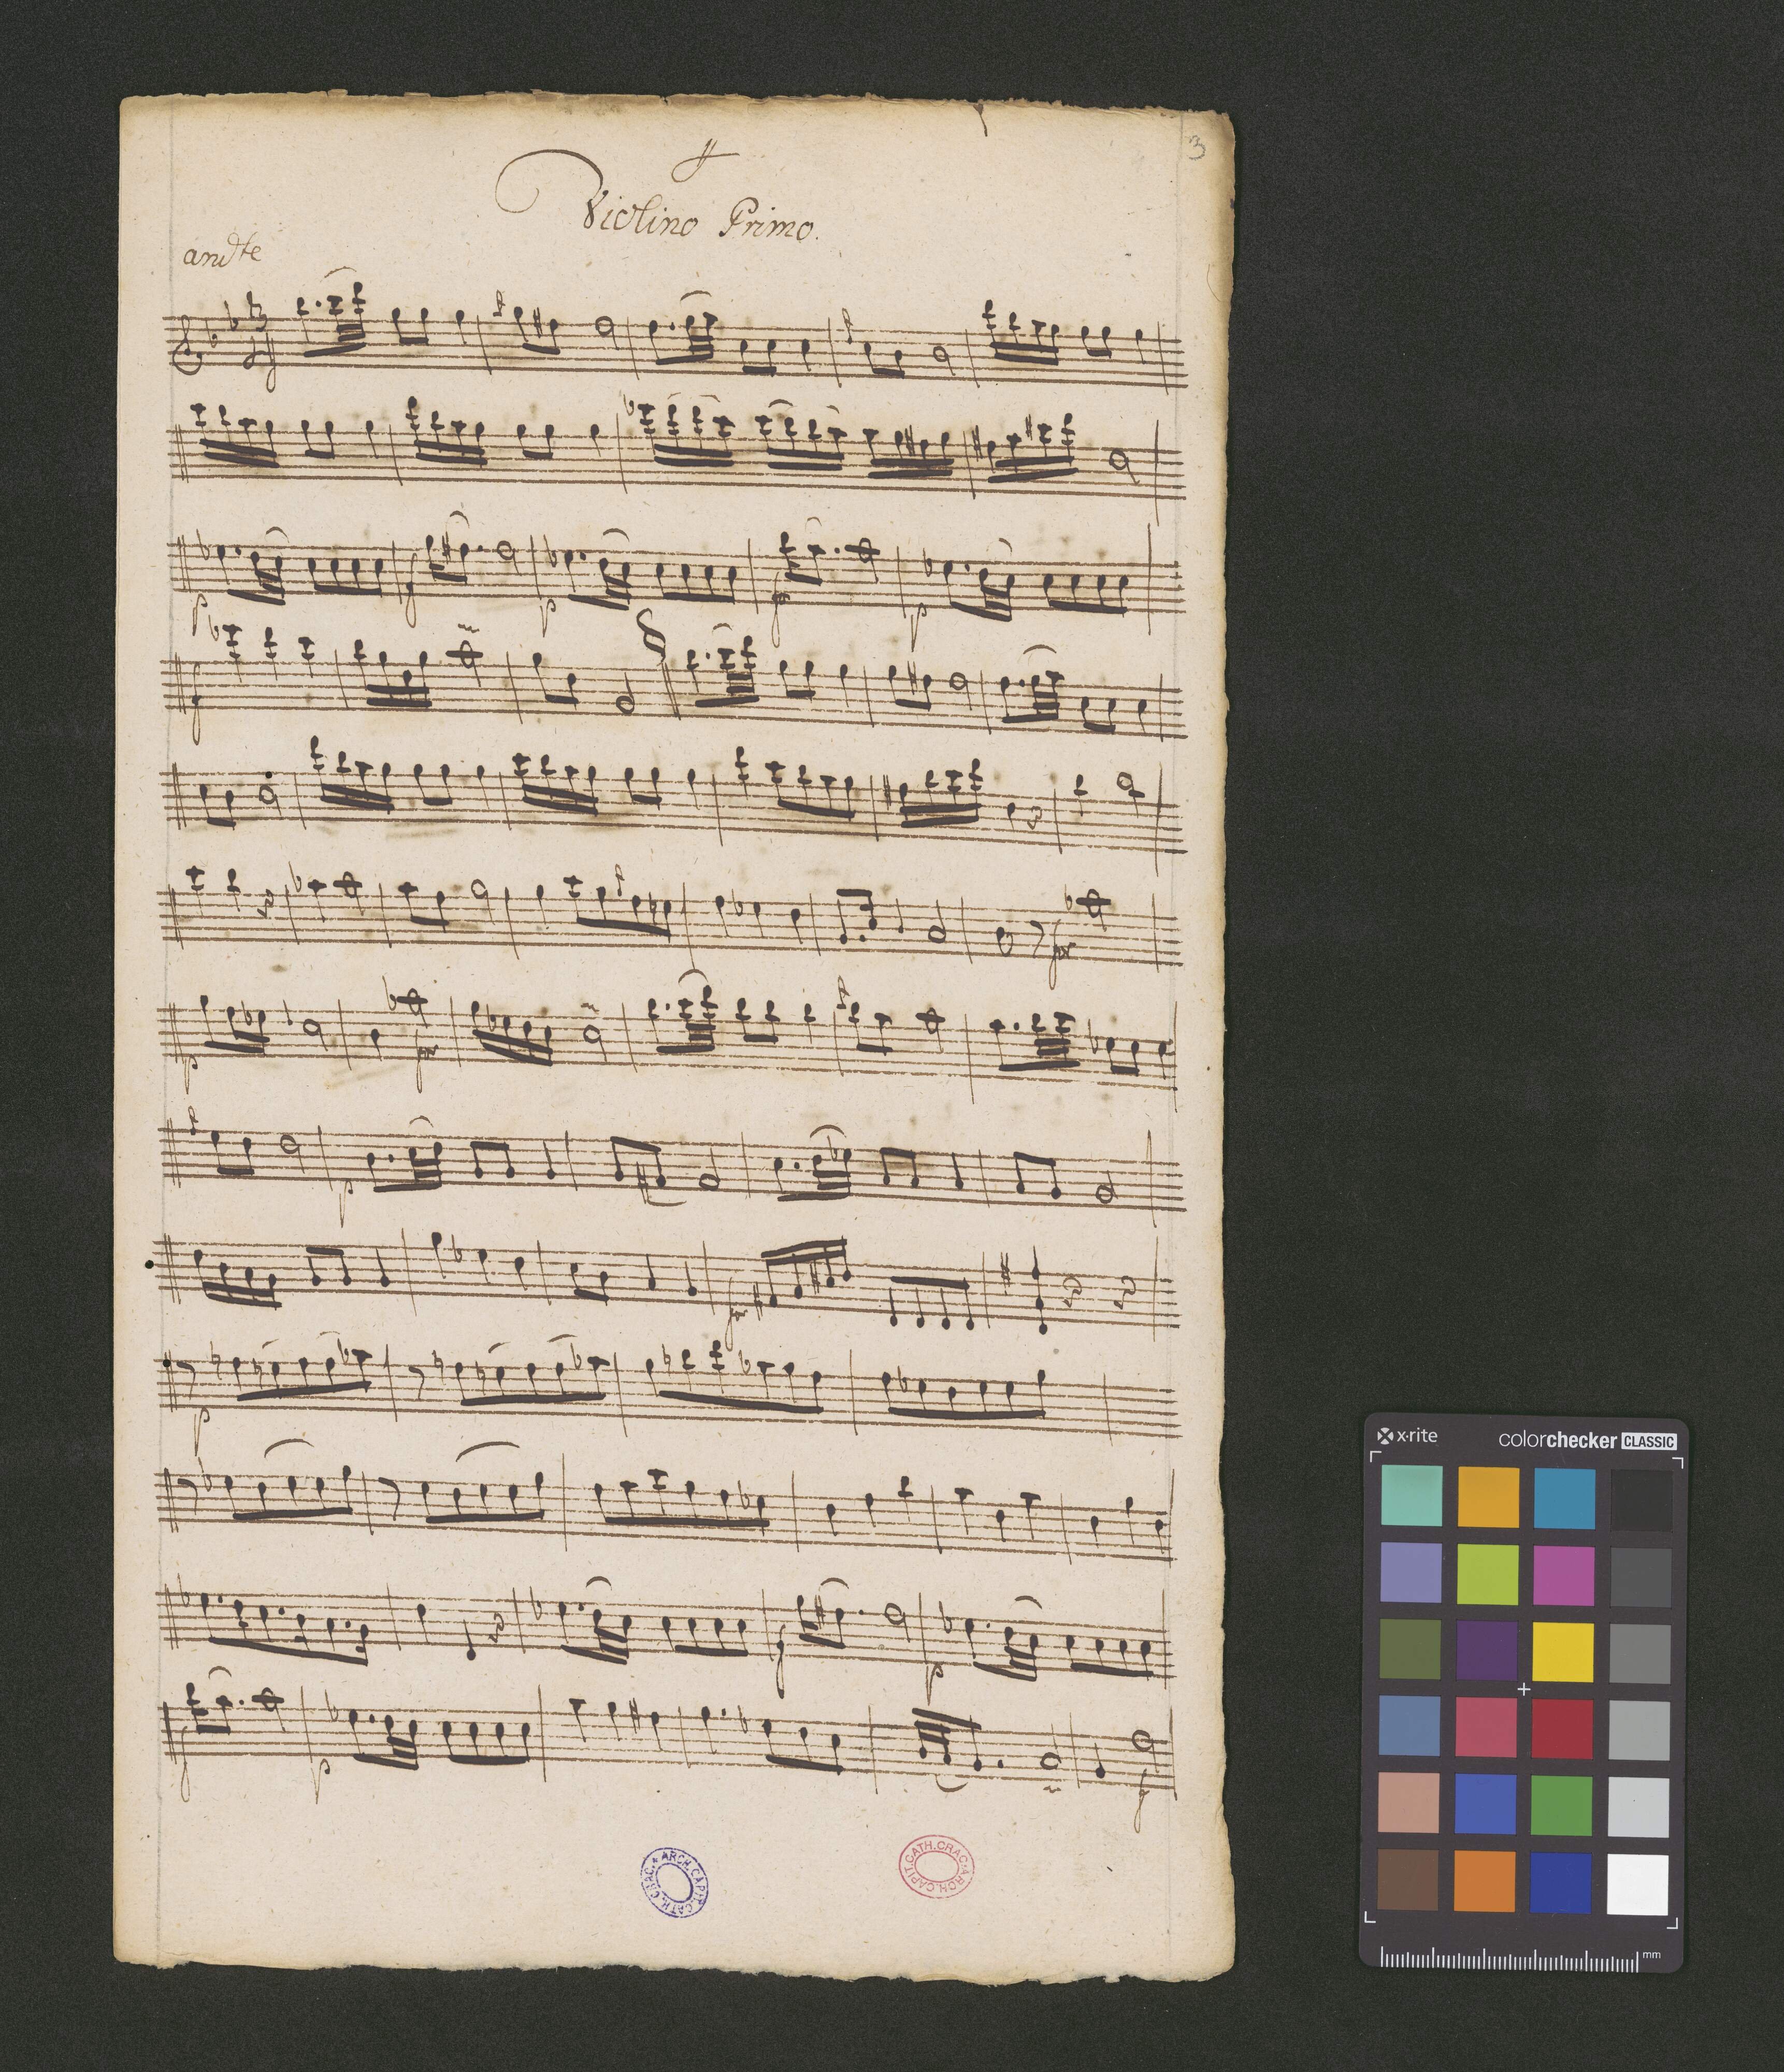 3
Violino Primo.
andte
p
f
p
f
p
f
for
p
for
p
for
p
f
p
f
p
f
ARCH. CAPIT. CATH. CRAC.
ARCH. CAPIT. CATH. CRAC.
x·rite
colorchecker CLASSIC
mm